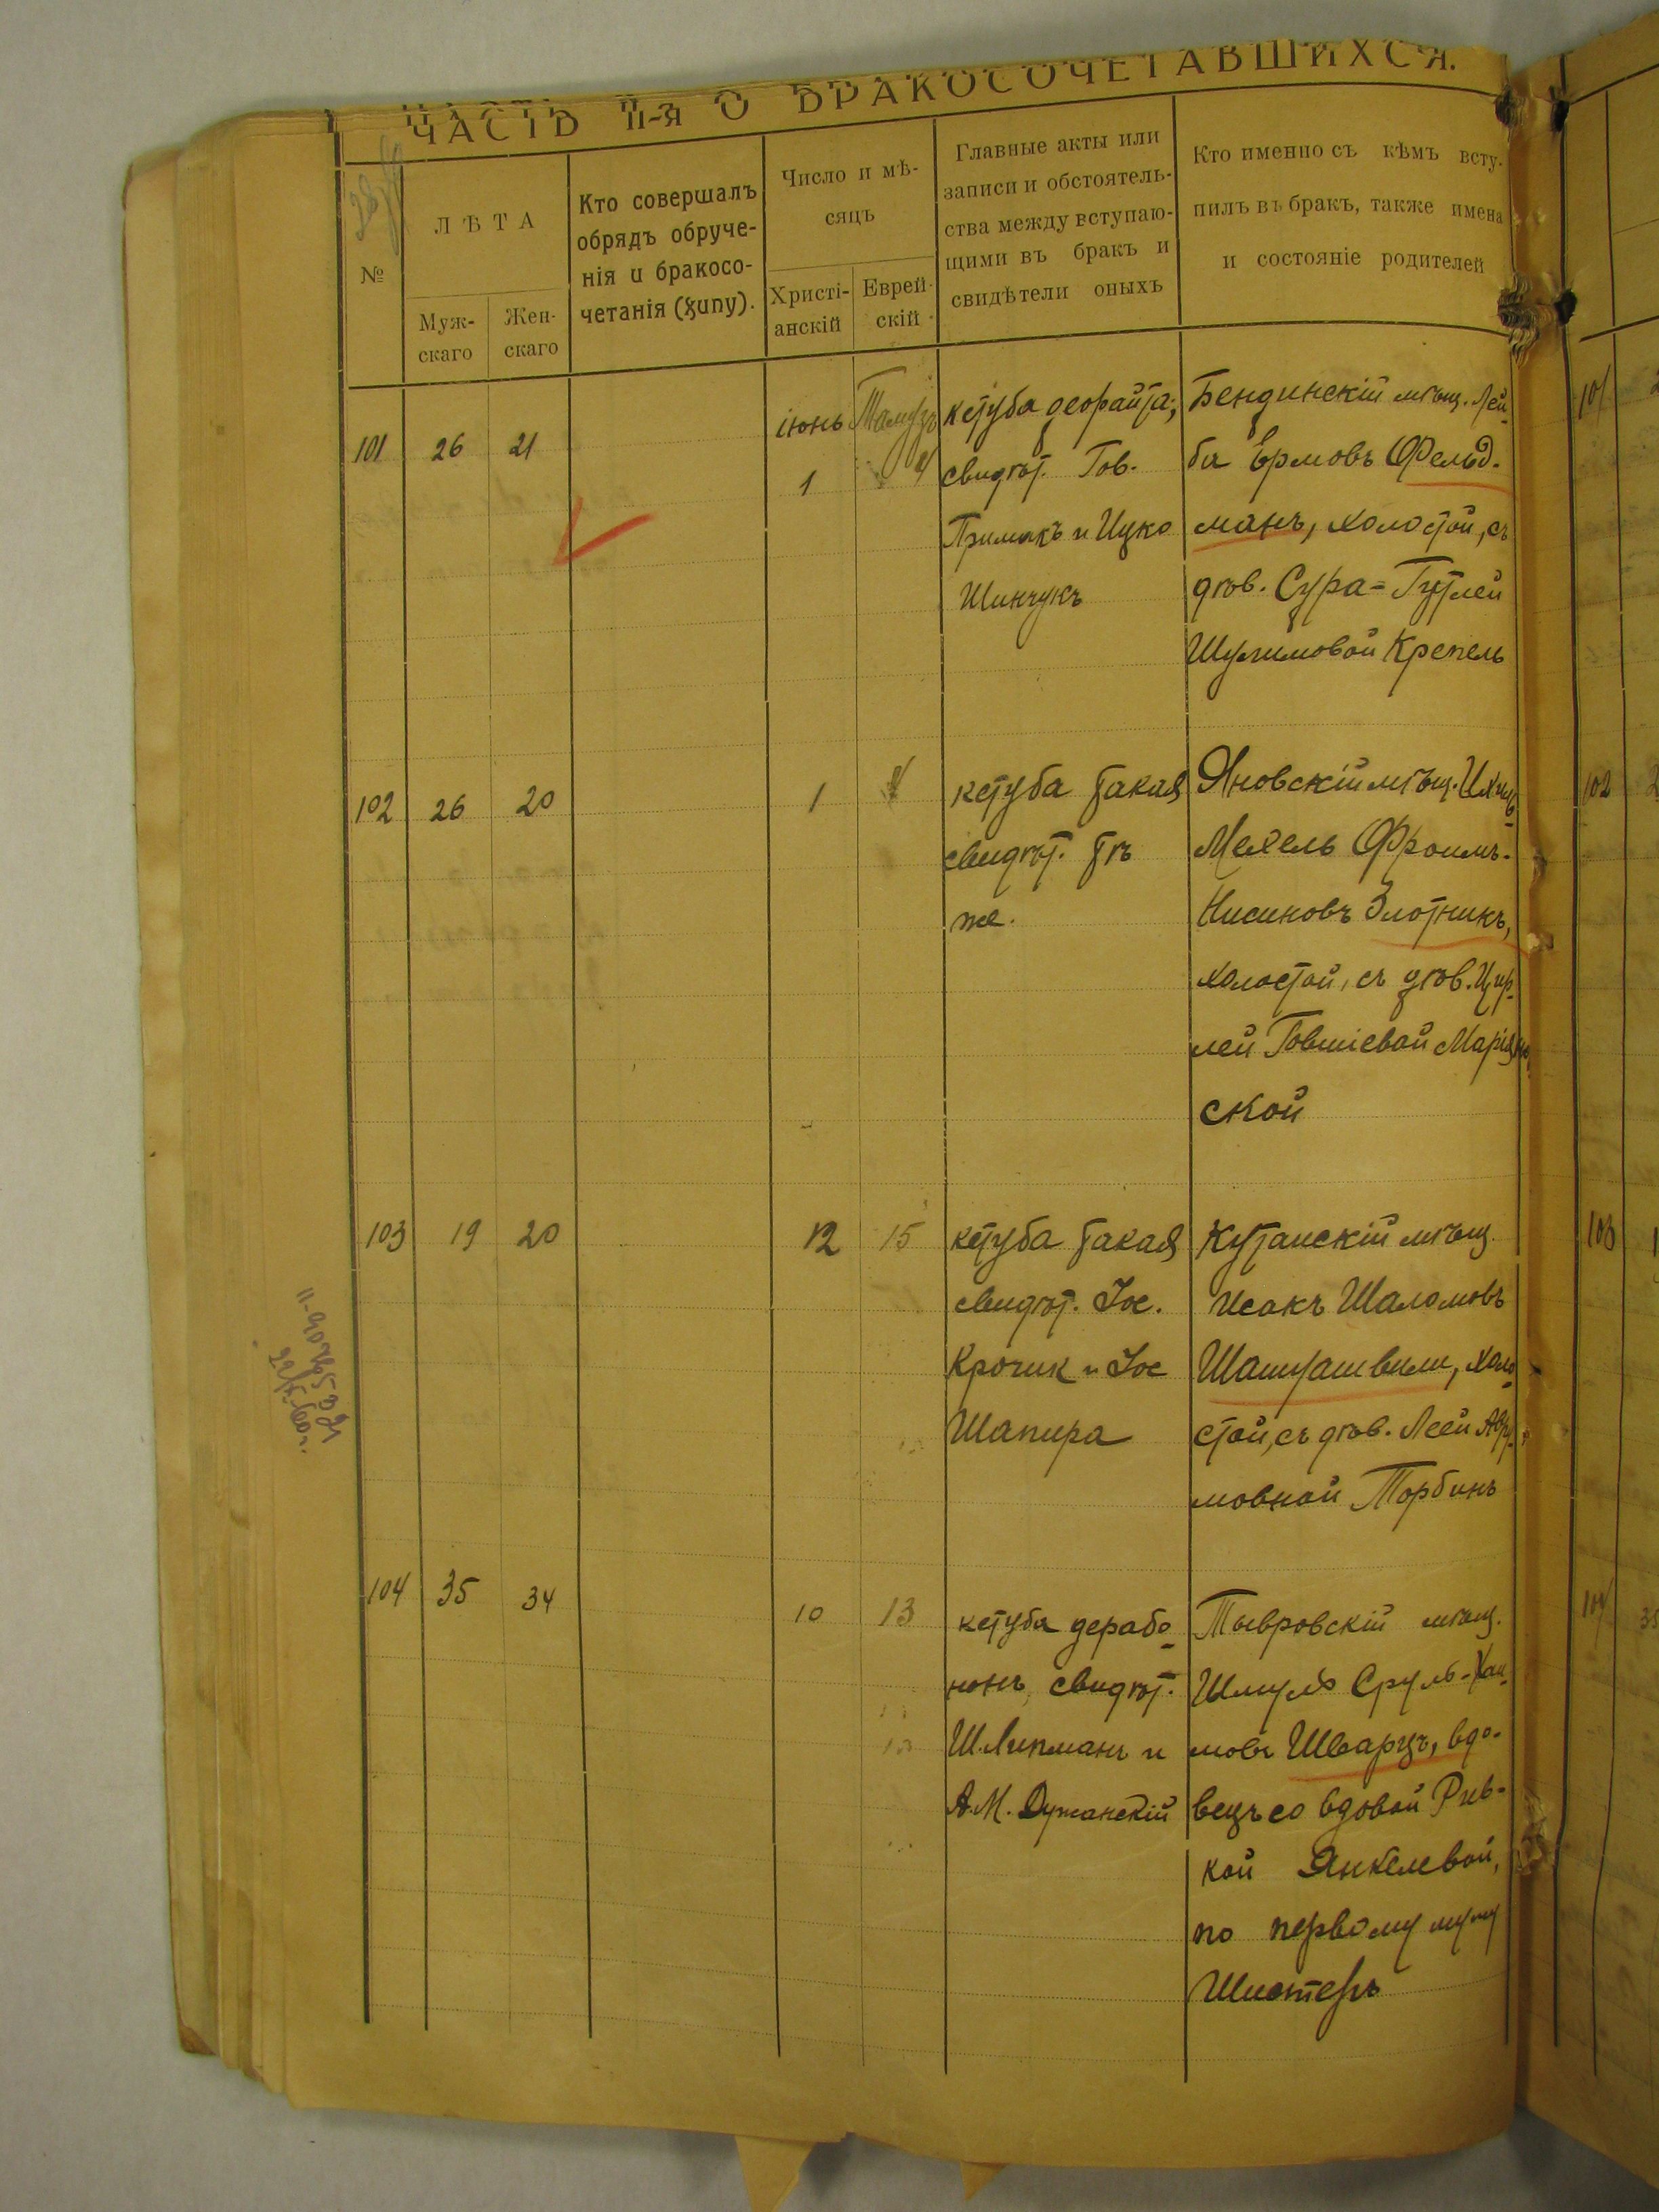 ЧАСТЬ II-я О БРАКОСОЧЕТАВШИХСЯ.
№
ЛѢТА
Муж-
скаго
Жен-
скаго
Кто совершалъ
обрядъ обруче-
нія и бракосо-
четанія (хупу).
Число и мѣ-
сяцъ
Христі-
анскій
Еврей-
скій
Главные акты или
записи и обстоятель-
ства между вступаю-
щими въ бракъ и
свидѣтели оныхъ
Кто именно съ кѣмъ всту-
пилъ въ бракъ, также имена
и состояніе родителей
101 26 21
іюнь
1
Тамузъ
4
кетуба деорайта;
свидѣт. Гов.
Примакъ и Ицко
Шинчукъ
Бендинскій мѣщ. Лей-
ба Ермовъ Фельд-
манъ, холостой, съ
дѣв. Сура-Гитлей
Шулимовой Крепель
102 26 20
1
4
кетуба такая
свидѣт. тѣ
же.
Яновскій мѣщ. Ихиль-
Мехель Фроимъ-
Нисиновъ Злотникъ,
холостой, съ дѣв. Цир-
лей Говшіевой
ской
103 19 20
12
15
кетуба такая
свидѣт. Іос.
Крочик и Іос
Шапира
Кутаискій мѣщ.
Исакъ Шаломовъ
Шашуашвили, холо-
стой, съ дѣв. Леей Авру-
мовной Торбинъ
104 35 34
10
13
кетуба дерабо-
нонъ, свидѣт.
Ш. Липманъ и
А. М. Дужанскій
Тывровскій мѣщ.
Шмуль Сруль-Хаи-
мовъ Шварцъ, вдо-
вецъ со вдовой Рив-
кой Янкелевой,
по первому мужу
Шистеръ
101
102
103
104